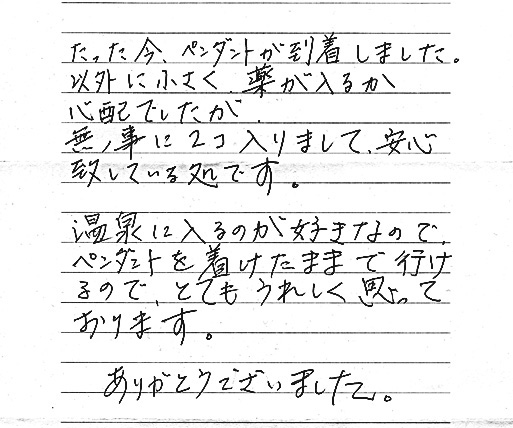 たった今、ペンダントが到着しました。
以外に小さく、薬が入るか
心配でしたが、
無事に2コ入りまして、安心
致している処です。
温泉に入るのが好きなので、
ペンダントを着けたままで行け
るので、とてもうれしく思って
おります。
ありがとうございました。